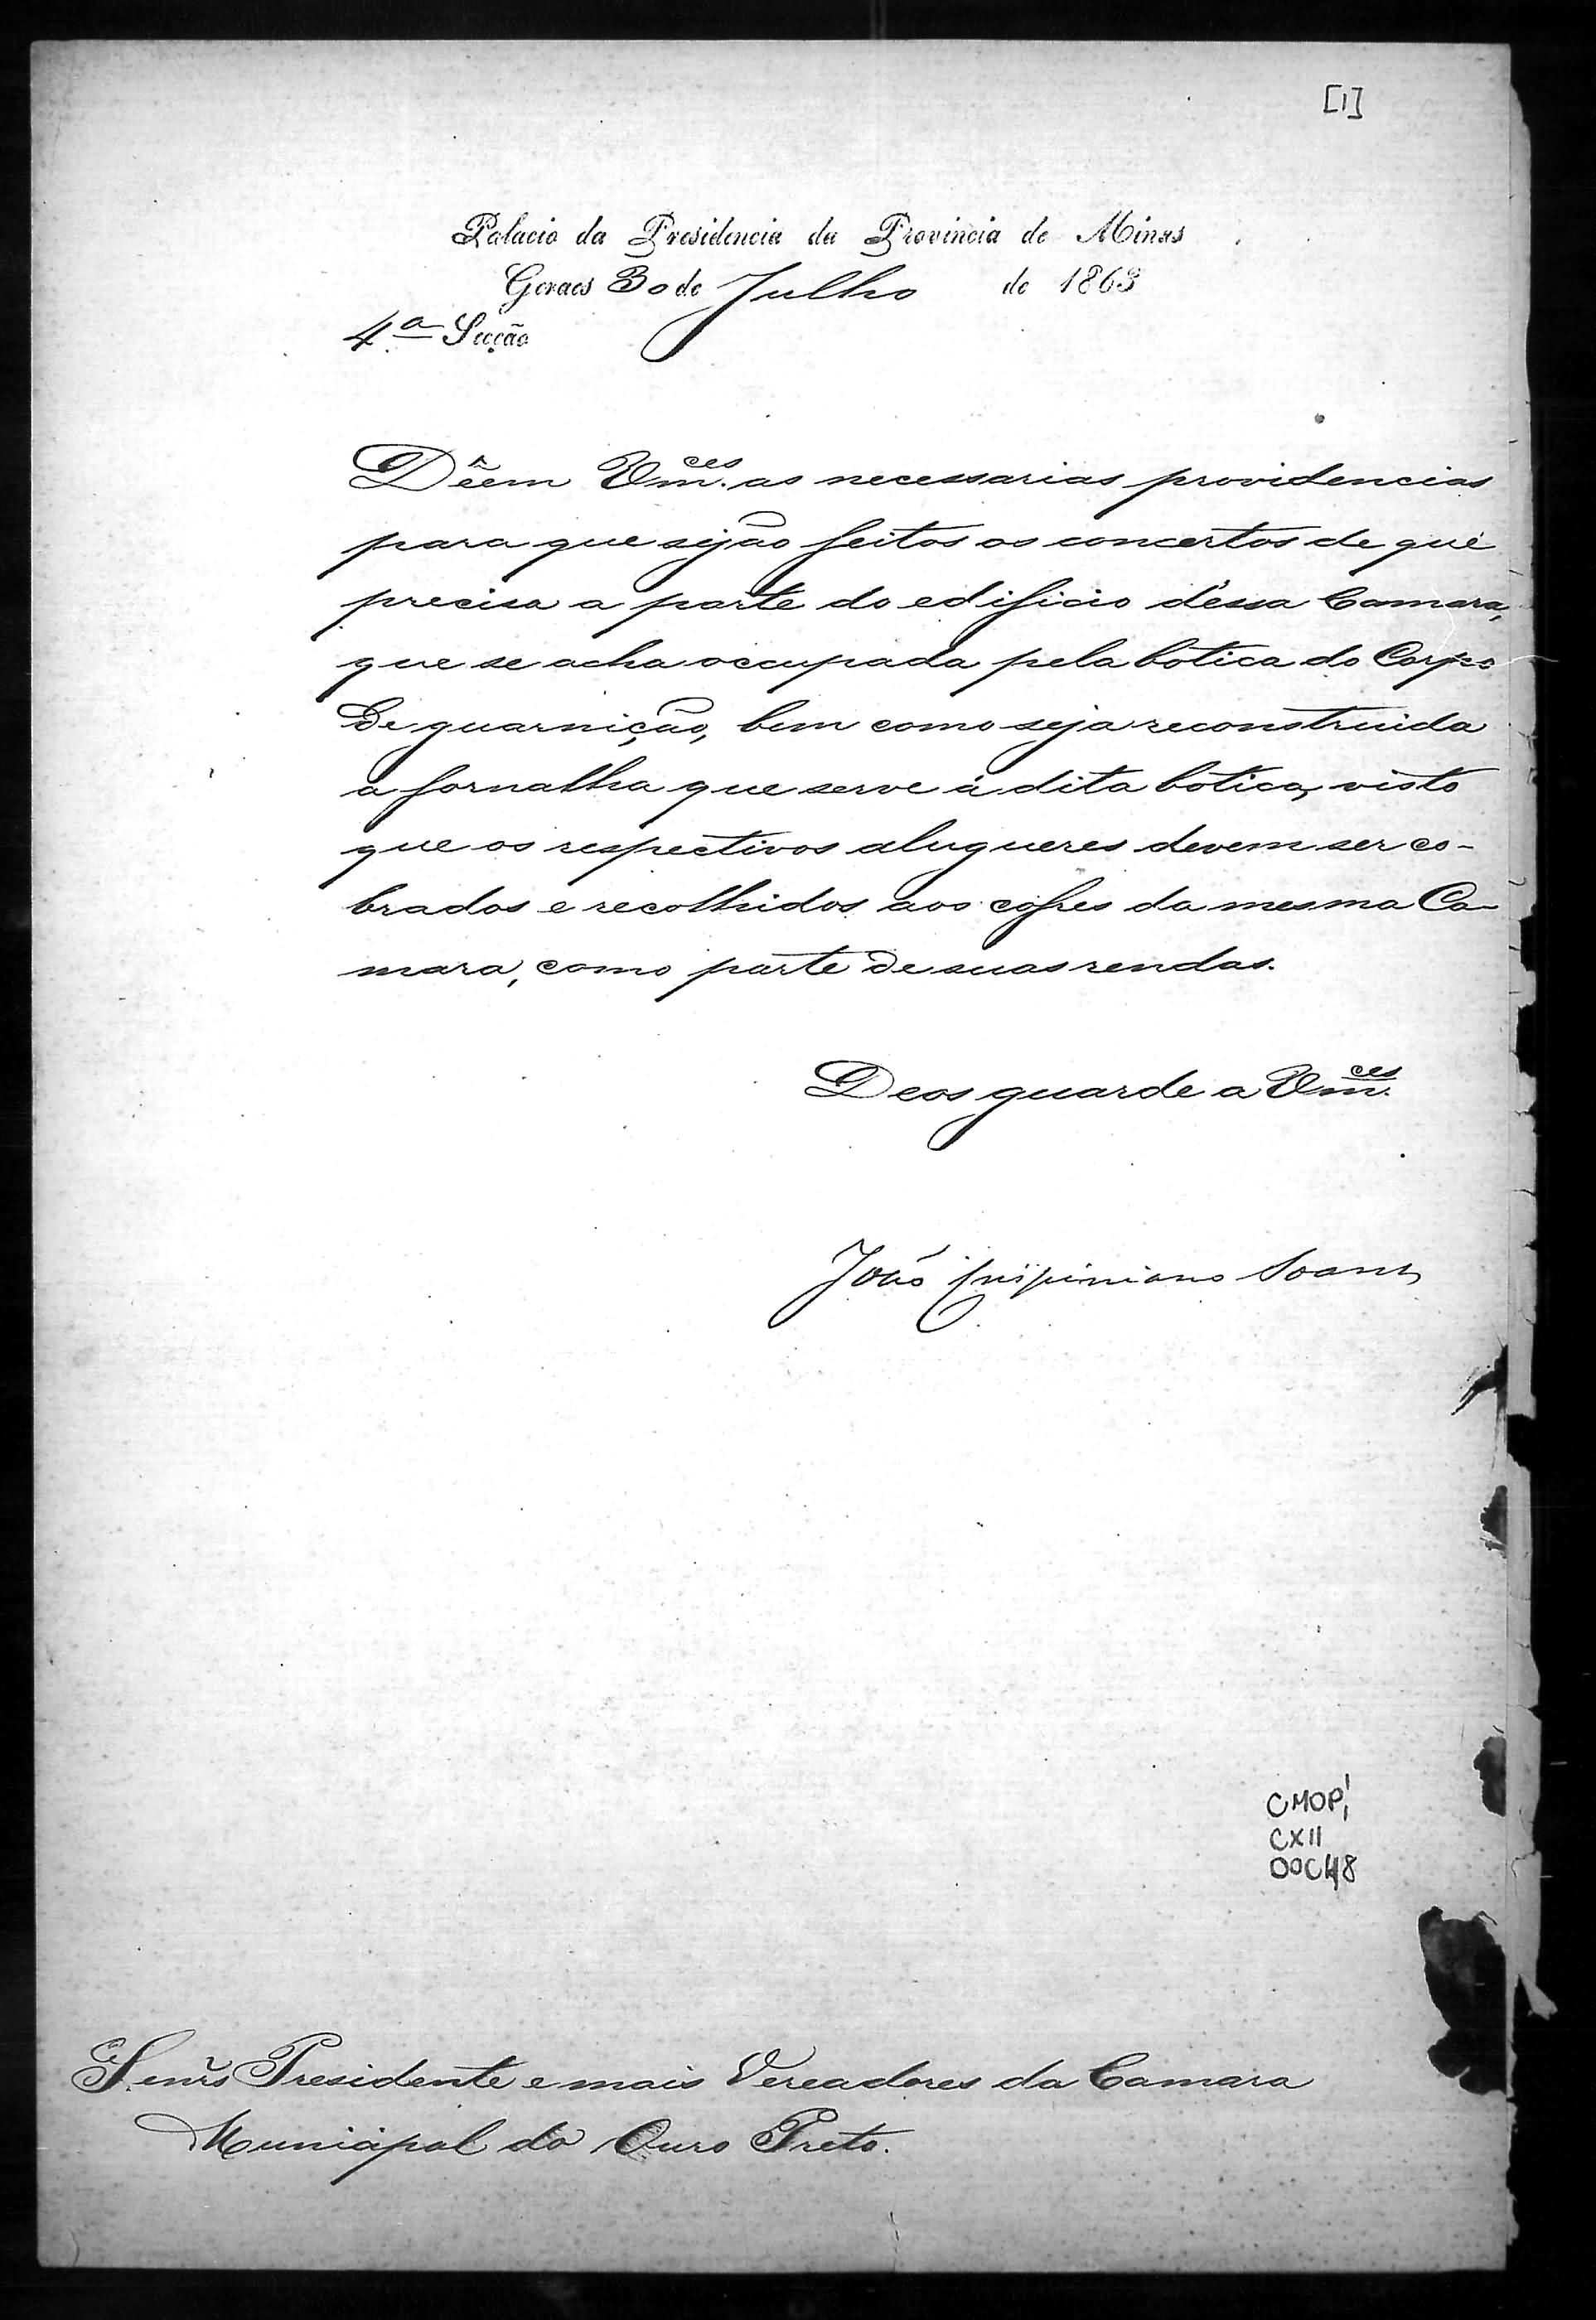 [1]
Palacio da Presidencia da Provincia de Minas
Geraes 30 de Julho de 1863
4.ª Secção
Dêem Vm.ces as necessarias providencias
para que sejão feitos os concertos de que
precisa a parte do edificio d'essa Camara,
que se acha occupada pela botica do Corpo
de guarnição, bem como seja reconstruida
a fornalha que serve á dita botica, visto
que os respectivos alugueres devem ser co-
brados e recolhidos aos cofres da mesma Ca-
mara, como parte de suas rendas.
Deos guarde a Vm.ces
João Crispiniano Soares
CMOP
CXII
Senrs Presidente e mais Vereadores da Camara
Municipal do Ouro Preto.